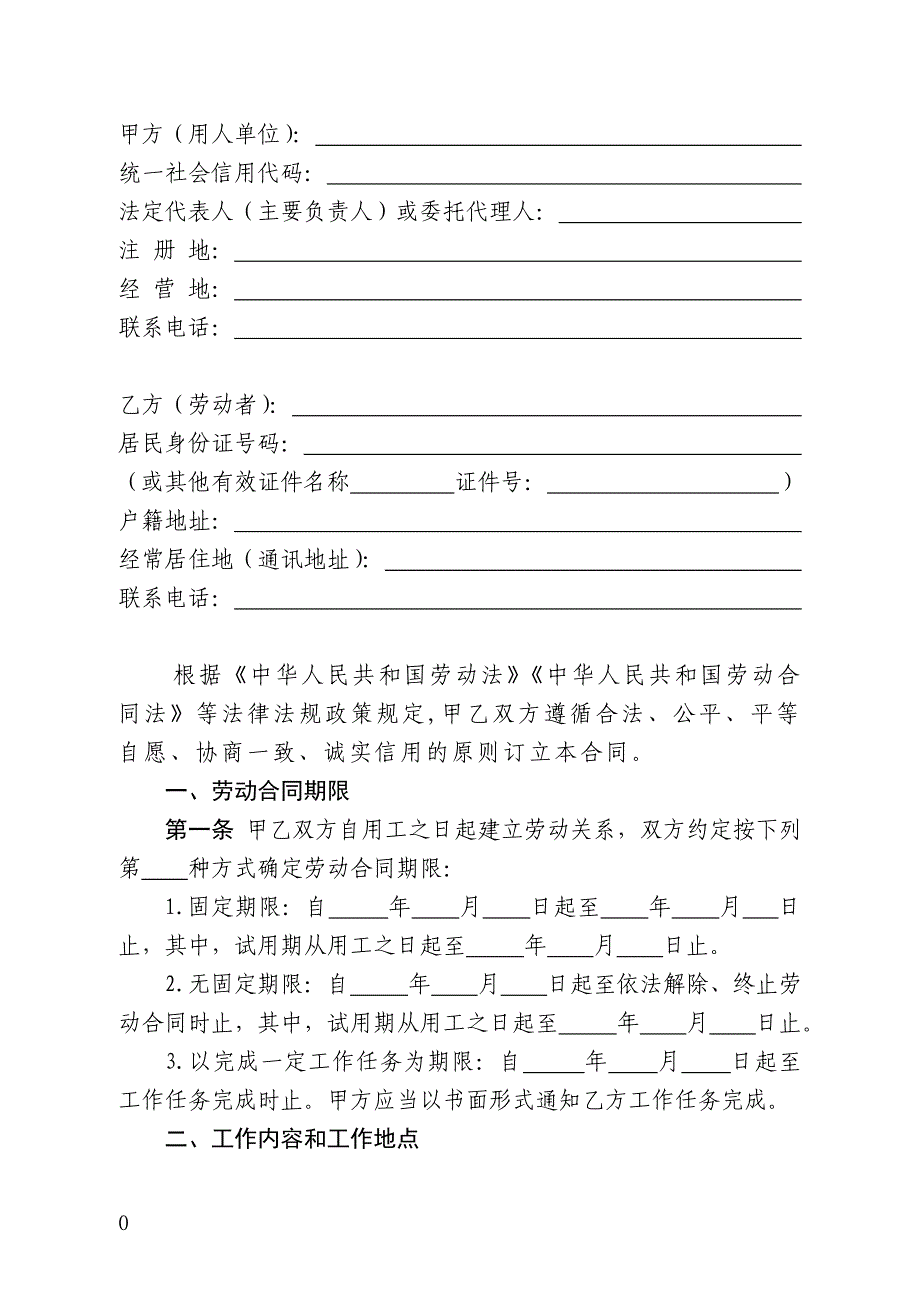 甲方（用人单位）：
统一社会信用代码：
法定代表人（主要负责人）或委托代理人：
注 册 地：
经 营 地：
联系电话：
乙方（劳动者）：
居民身份证号码：
（或其他有效证件名称_________证件号：____________________）
户籍地址：
经常居住地（通讯地址）：
联系电话：
根据《中华人民共和国劳动法》《中华人民共和国劳动合
同法》等法律法规政策规定,甲乙双方遵循合法、公平、平等
自愿、协商一致、诚实信用的原则订立本合同。
一、劳动合同期限
第一条 甲乙双方自用工之日起建立劳动关系，双方约定按下列
第____种方式确定劳动合同期限：
1.固定期限：自_____年____月____日起至____年____月___日
止，其中，试用期从用工之日起至_____年____月____日止。
2.无固定期限：自_____年____月____日起至依法解除、终止劳
动合同时止，其中，试用期从用工之日起至_____年____月____日止。
3.以完成一定工作任务为期限：自_____年____月____日起至
工作任务完成时止。甲方应当以书面形式通知乙方工作任务完成。
二、工作内容和工作地点
0